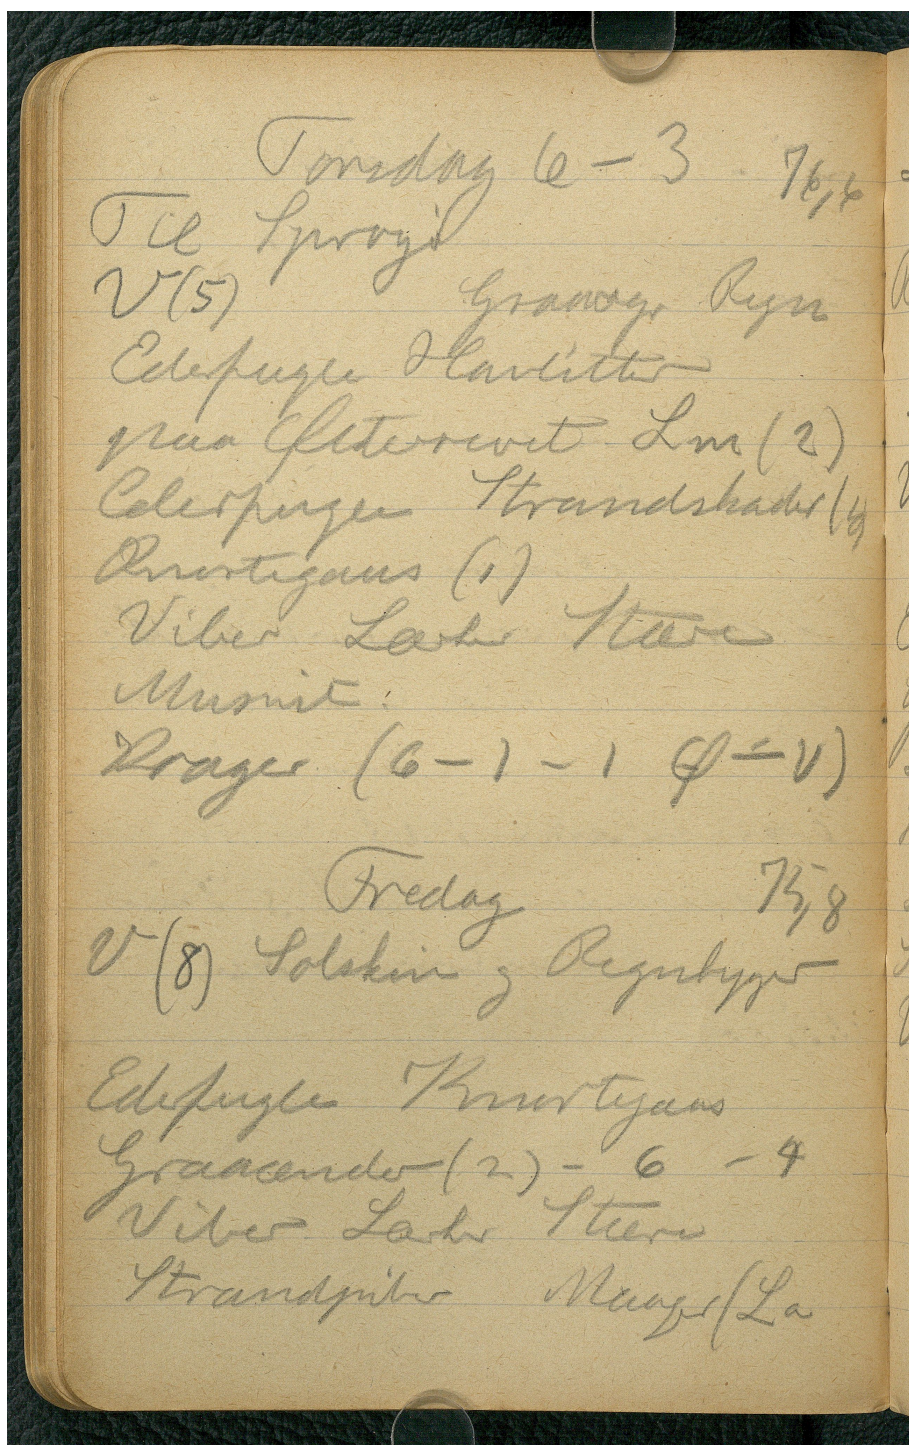 Torsdag 6 - 3 76,6
Til Sprogø
V (5) Graavejr Regn
Ederfugle Havlitter
paa Østerrevet Lm (2)
Ederfugle Strandskader (4)
Knortegaas (1)
Viber Lærker Stære
Musvit.
Krager (6 - 1 - 1 Ø - V)
Fredag 75,8
V (8) Solskin og Regnbyger
Ederfugle Knortegaas
Graaænder (2) - 6 - 4
Viber Lærker Stære
Strandpiber Maager (La